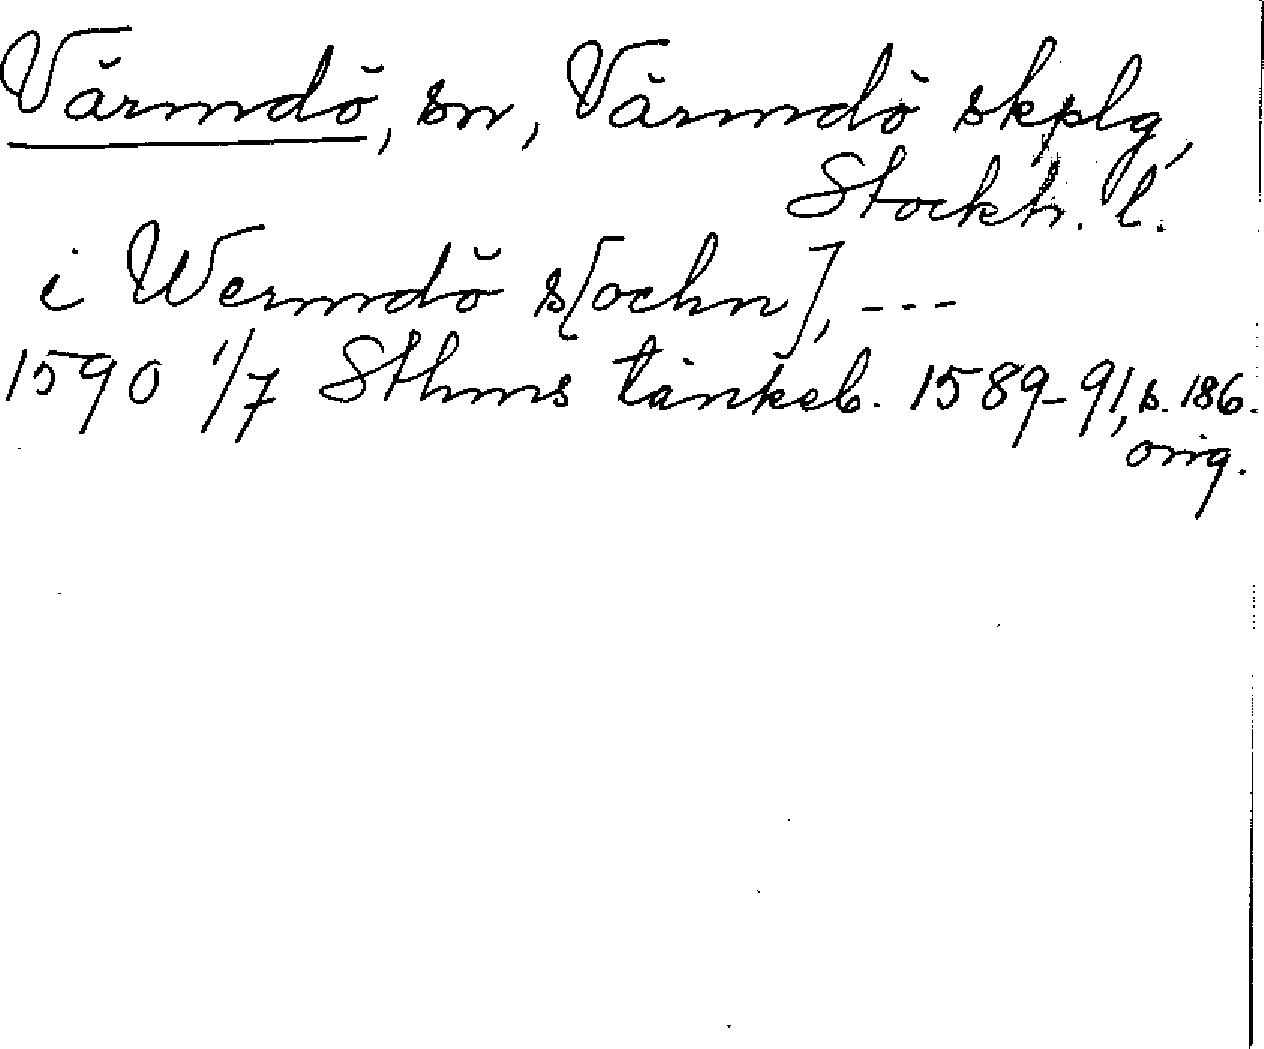 Värmdö, sn, Värmdö skplg,
Stockh. l.
i Wermdö s[ochn], ---
1590 1/7 Sthms tänkeb. 1589-91, s. 186.
orig.